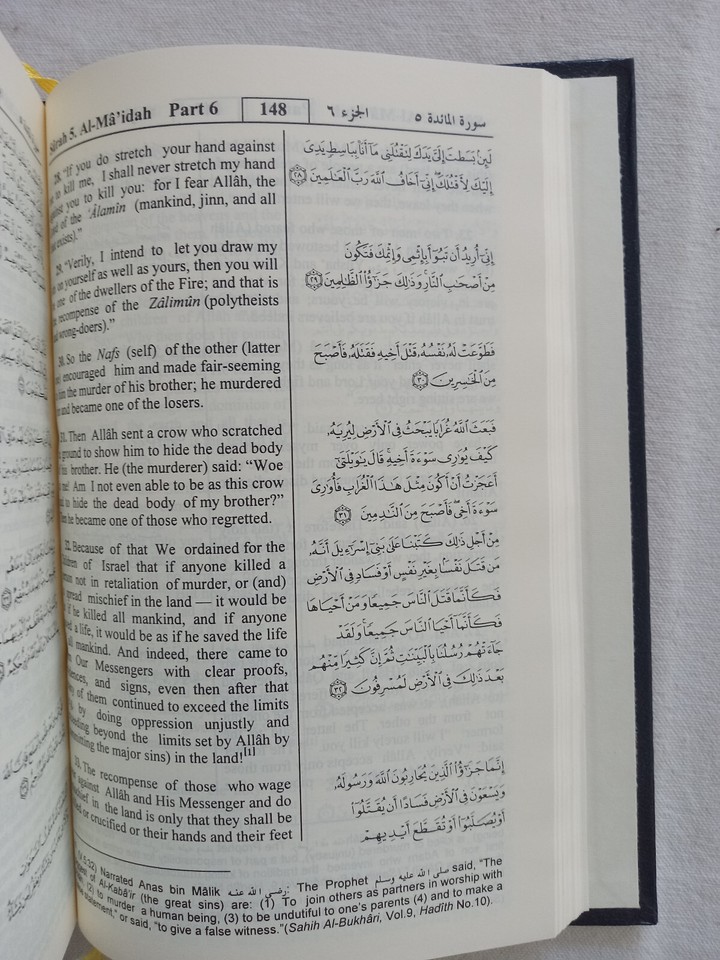 Sûrah 5. Al-Mâ'idah Part 6 148 الجزء ٦ سورة المائدة ٥
28. "If you do stretch your hand against
to kill me, I shall never stretch my hand
against you to kill you: for I fear Allâh, the
of the 'Âlamîn (mankind, jinn, and all
exists)."
29. "Verily, I intend to let you draw my
on yourself as well as yours, then you will
one of the dwellers of the Fire; and that is
recompense of the Zâlimûn (polytheists
wrong-doers)."
30. So the Nafs (self) of the other (latter
encouraged him and made fair-seeming
him the murder of his brother; he murdered
and became one of the losers.
31. Then Allâh sent a crow who scratched
ground to show him to hide the dead body
his brother. He (the murderer) said: "Woe
me! Am I not even able to be as this crow
to hide the dead body of my brother?"
he became one of those who regretted.
32. Because of that We ordained for the
of Israel that if anyone killed a
not in retaliation of murder, or (and)
spread mischief in the land — it would be
if he killed all mankind, and if anyone
a life, it would be as if he saved the life
mankind. And indeed, there came to
Our Messengers with clear proofs,
and signs, even then after that
of them continued to exceed the limits
by doing oppression unjustly and
beyond the limits set by Allâh by
the major sins) in the land![1]
33. The recompense of those who wage
against Allâh and His Messenger and do
in the land is only that they shall be
or crucified or their hands and their feet
لَئِنۢ بَسَطتَ إِلَىَّ يَدَكَ لِتَقْتُلَنِى مَآ أَنَا۠ بِبَاسِطٍ يَدِىَ
إِلَيْكَ لِأَقْتُلَكَ إِنِّىٓ أَخَافُ ٱللَّهَ رَبَّ ٱلْعَـٰلَمِينَ ٢٨
إِنِّىٓ أُرِيدُ أَن تَبُوٓأَ بِإِثْمِى وَإِثْمِكَ فَتَكُونَ
مِنْ أَصْحَـٰبِ ٱلنَّارِ وَذَٰلِكَ جَزَٰٓؤُا۟ ٱلظَّـٰلِمِينَ ٢٩
فَطَوَّعَتْ لَهُۥ نَفْسُهُۥ قَتْلَ أَخِيهِ فَقَتَلَهُۥ فَأَصْبَحَ
مِنَ ٱلْخَـٰسِرِينَ ٣٠
فَبَعَثَ ٱللَّهُ غُرَابًا يَبْحَثُ فِى ٱلْأَرْضِ لِيُرِيَهُۥ
كَيْفَ يُوَٰرِى سَوْءَةَ أَخِيهِ قَالَ يَـٰوَيْلَتَىٰٓ
أَعَجَزْتُ أَنْ أَكُونَ مِثْلَ هَـٰذَا ٱلْغُرَابِ فَأُوَٰرِىَ
سَوْءَةَ أَخِى فَأَصْبَحَ مِنَ ٱلنَّـٰدِمِينَ ٣١
مِنْ أَجْلِ ذَٰلِكَ كَتَبْنَا عَلَىٰ بَنِىٓ إِسْرَٰٓءِيلَ أَنَّهُۥ
مَن قَتَلَ نَفْسًۢا بِغَيْرِ نَفْسٍ أَوْ فَسَادٍ فِى ٱلْأَرْضِ
فَكَأَنَّمَا قَتَلَ ٱلنَّاسَ جَمِيعًا وَمَنْ أَحْيَاهَا
فَكَأَنَّمَآ أَحْيَا ٱلنَّاسَ جَمِيعًا وَلَقَدْ
جَآءَتْهُمْ رُسُلُنَا بِٱلْبَيِّنَـٰتِ ثُمَّ إِنَّ كَثِيرًا مِّنْهُم
بَعْدَ ذَٰلِكَ فِى ٱلْأَرْضِ لَمُسْرِفُونَ ٣٢
إِنَّمَا جَزَٰٓؤُا۟ ٱلَّذِينَ يُحَارِبُونَ ٱللَّهَ وَرَسُولَهُۥ
وَيَسْعَوْنَ فِى ٱلْأَرْضِ فَسَادًا أَن يُقَتَّلُوٓا۟
أَوْ يُصَلَّبُوٓا۟ أَوْ تُقَطَّعَ أَيْدِيهِمْ
5:32) Narrated Anas bin Mâlik رضي الله عنه: The Prophet صلى الله عليه وسلم said, "The
of Al-Kabâ'ir (the great sins) are: (1) To join others as partners in worship with
(2) to murder a human being, (3) to be undutiful to one's parents (4) and to make a
statement," or said, "to give a false witness." (Sahih Al-Bukhâri, Vol.9, Hadîth No.10).